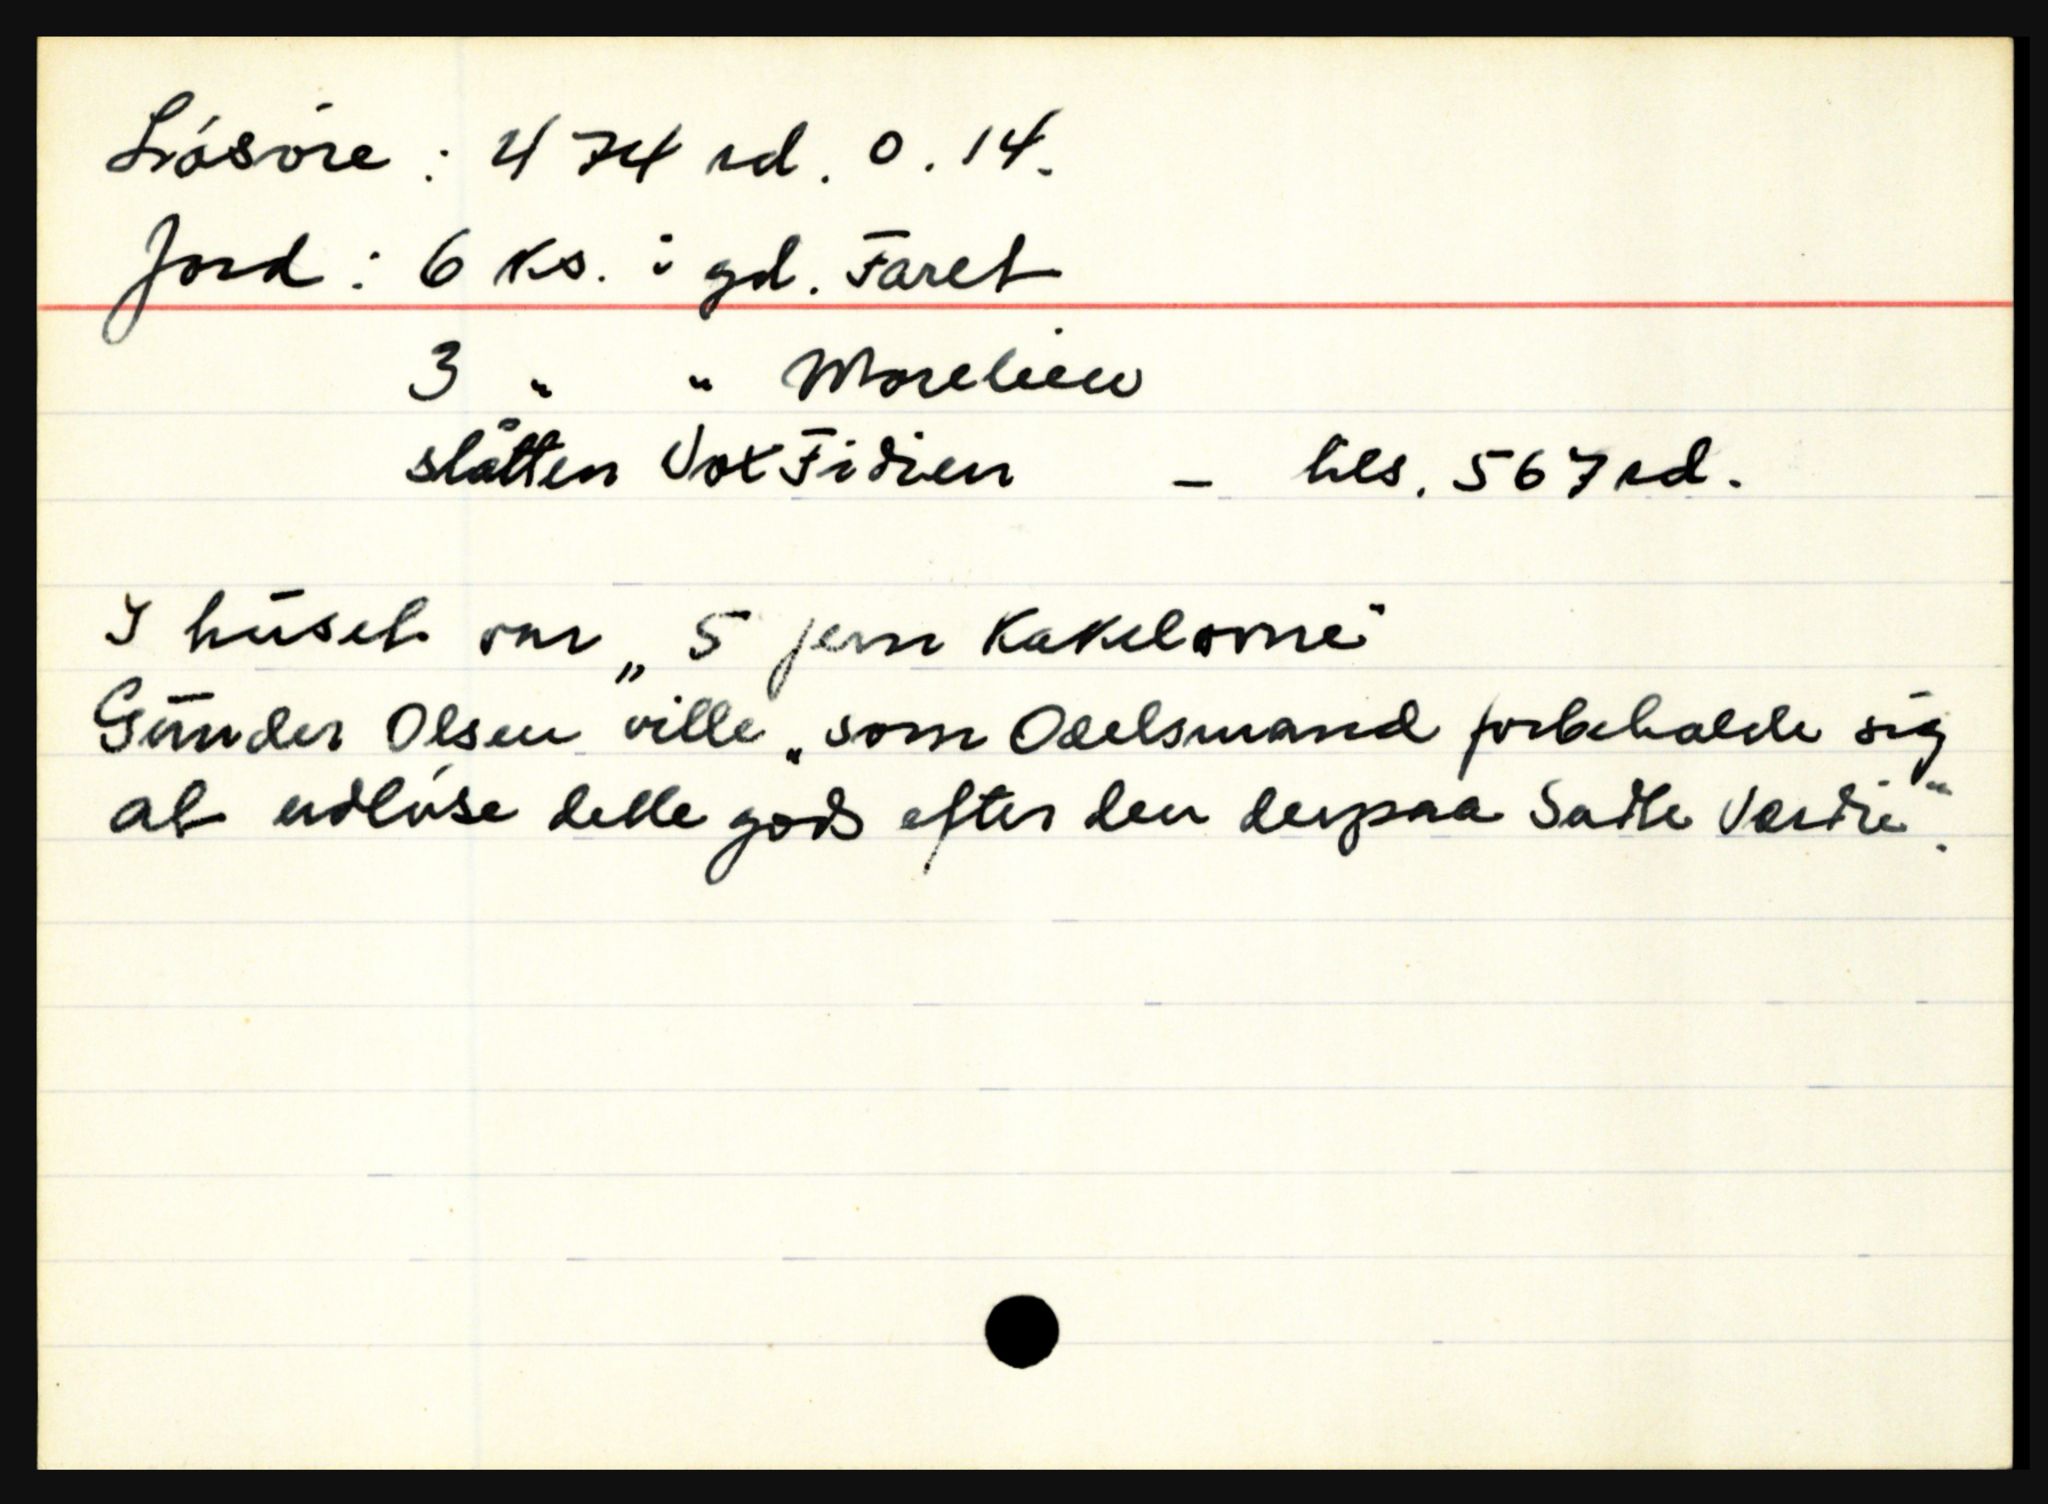 Lösöre : 474 rd. 0. 14.
Jord : 6 ks. i gd. Faret
3 " " Morelien
slåtten VoxFidien - tils. 567 rd.
I huset var „5 jern Kakelovne"
Gunder Olsen ville „som Odelsmand forbeholde sig
at udlöse dette gods efter den derpaa Sadte Værdie".